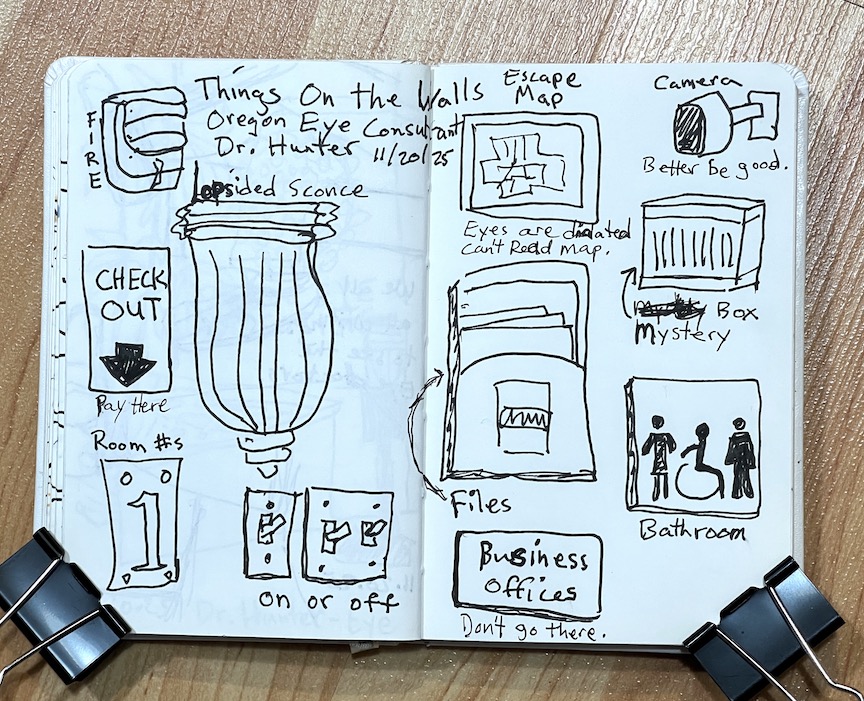 Things On the Walls
Oregon Eye Consultant
Dr. Hunter 11/20/25
FIRE
Lopsided Sconce
CHECK
OUT
Pay Here
Room #s
1
on or off
Escape
Map
Eyes are dialated
Can't Read Map.
Files
Business
Offices
Don't go there.
Camera
Better be good.
Box
Mystery
Bathroom